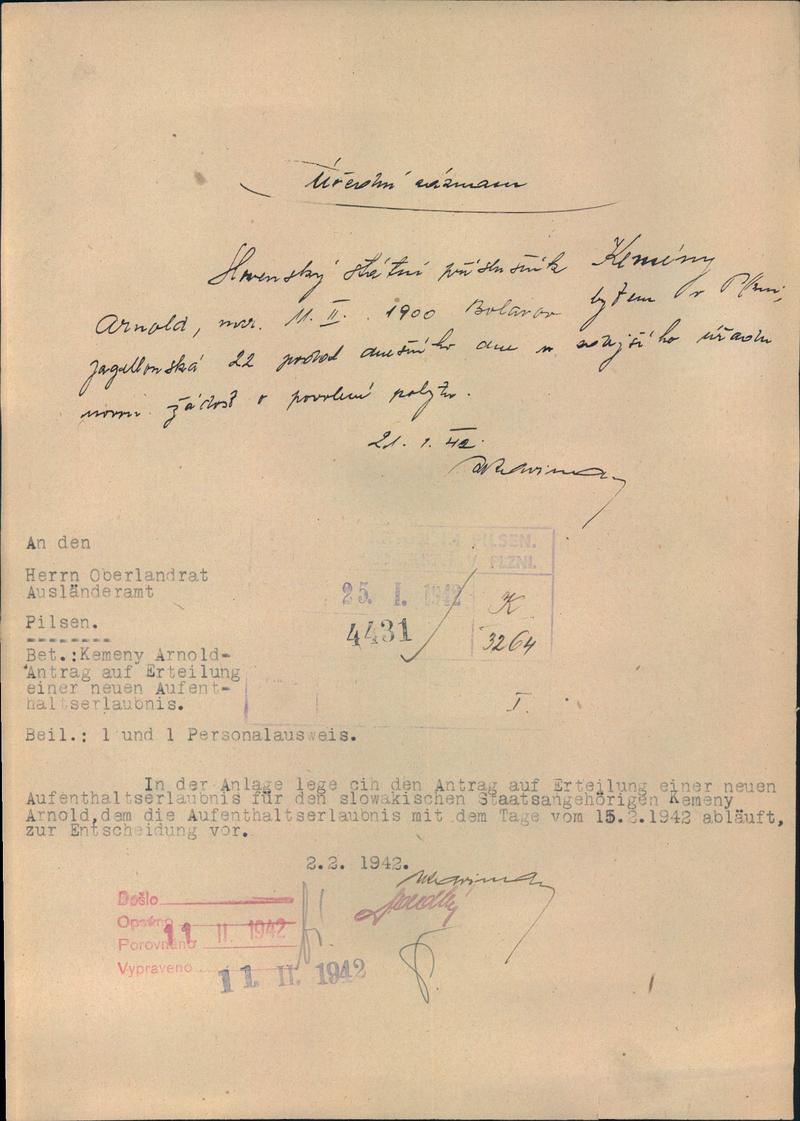 Úřední záznam
Slovenský státní příslušník Kemény
Arnold, nar. 11. II. 1900 bytem v Plzni,
Jagellonská 22 podal dnešního dne u zdejšího úřadu
novou žádost o povolení pobytu.
21. 1. 42.
An den
Herrn Oberlandrat
Ausländeramt
Pilsen.
PILSEN.
V PLZNI.
25. I. 1942
K
4431
3264
I.
Bet.:Kemeny Arnold-
Antrag auf Erteilung
einer neuen Aufent-
haltserlaubnis.
Beil.: 1 und 1 Personalausweis.
In der Anlage lege cih den Antrag auf Erteilung einer neuen
Aufenthaltserlaubnis für den slowakischen Staatsangehörigen Kemeny
Arnold,dem die Aufenthaltserlaubnis mit dem Tage vom 15.2.1942 abläuft,
zur Entscheidung vor.
2.2. 1942.
Došlo
Opsáno
11 II. 1942
Porovnáno
Vypraveno
11. II. 1942